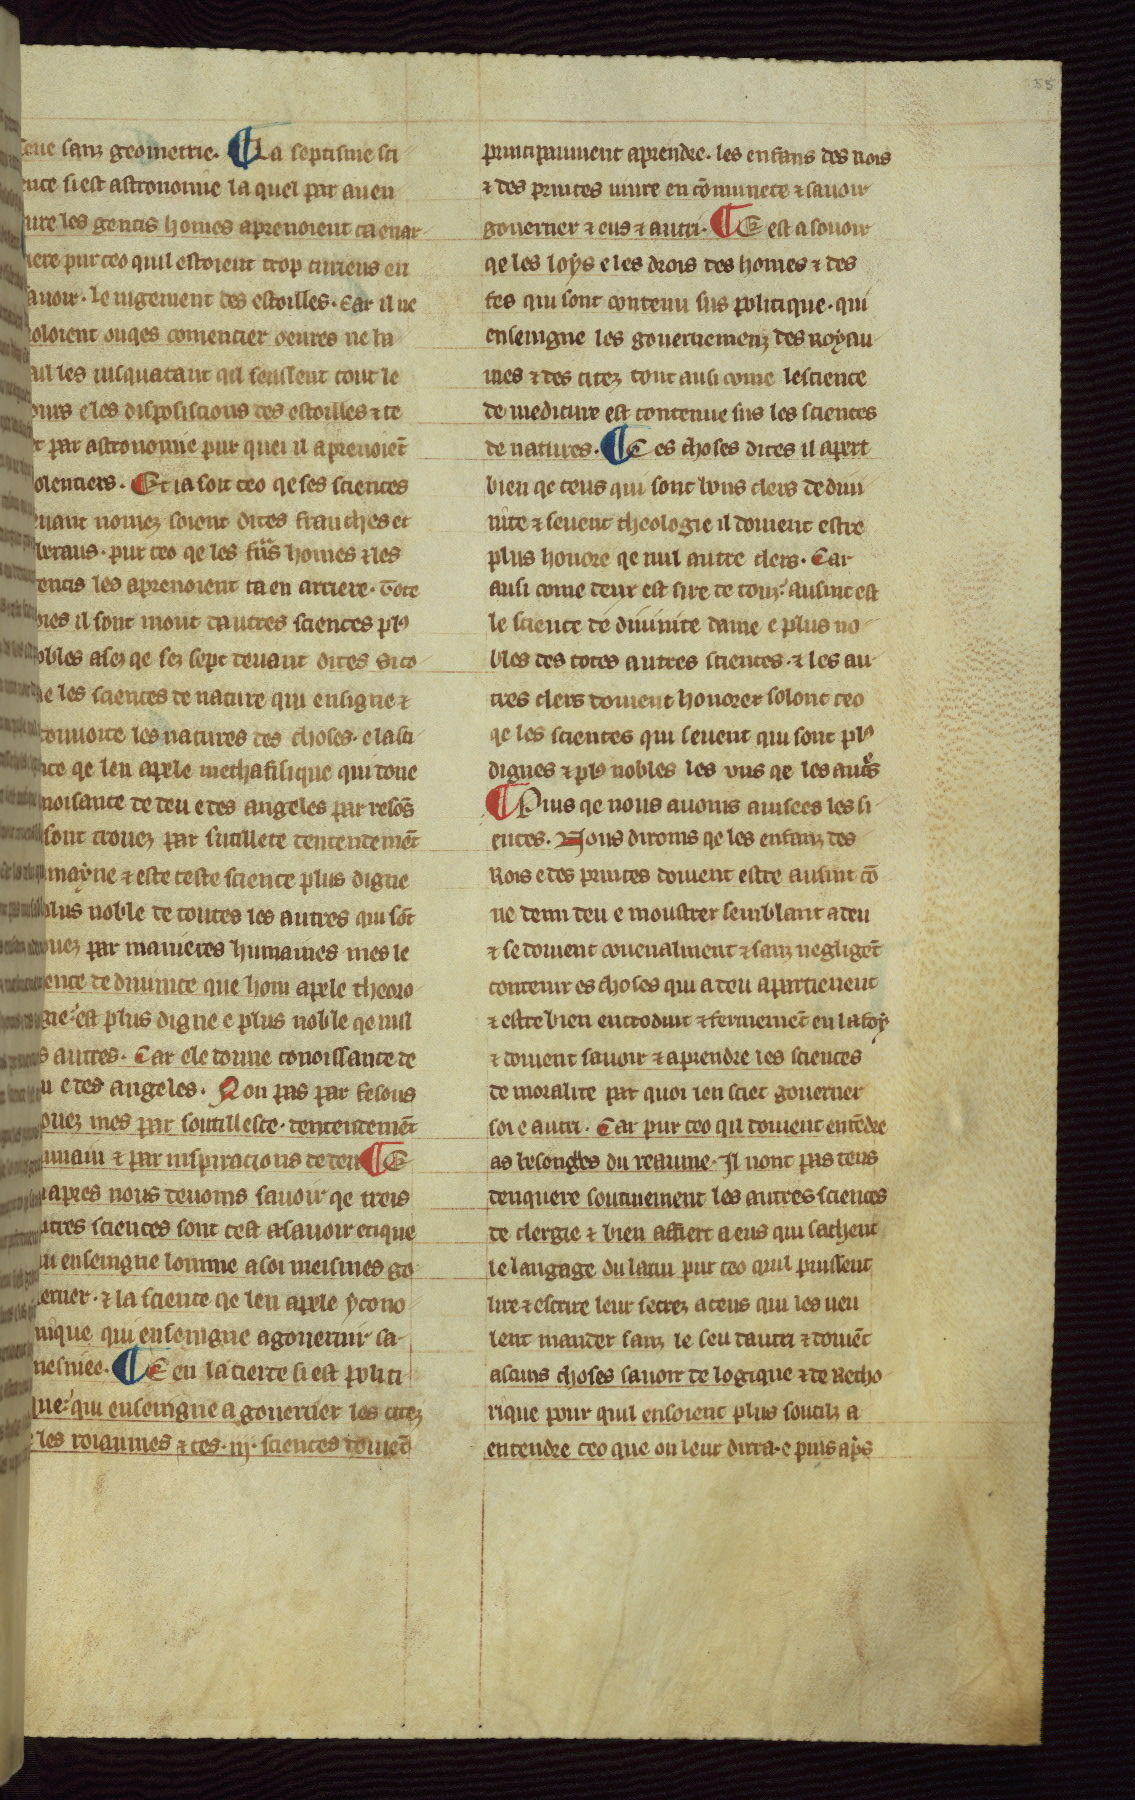 sanz geometrie. ¶ La septisme sci
ence si est astronomie la quel par anen
ture les gentis homes aprenoient ca enar
iere pur ceo quil estoient trop curieus en
savoir. le iugement des estoilles. Car il ne
voloient onqes comencier oeures ne ba
les iusquatant qil seussent tout le
cours e les disposiscions des estoilles ⁊ ce
par astronomie pur quei il aprenoiet̄
volentiers. Et ia soit ceo qe ses sciences
devant nomez soient dites franches et
pur ceo qe les homes ⁊ les
gentis les aprenoient ca en arriere. Tote
il sont mout dautres sciences plꝰ
nobles asez qe sez sept devant dites Sico
me les sciences de nature qui ensigne ⁊
les natures des choses. e la sci
ence qe len apele methafisique qui done
conoisance de deu e des angeles par resos̄
sont trouez par sutillete dentendemēt
humayne ⁊ este ceste science plus digne
plus noble de toutes les autres qui sōt
trouez par manieres humaines mes le
science de divinite que hom apele theolo
gie. est plus digne e plus noble qe nul
autres. Car ele donne conoissance de
deu e des angeles. Non pas par resons
trouez mes par soutilleste. dentendemēt
humain ⁊ par inspiracions de deu ¶ E
apres nous devoms savoir qe treis
autres sciences sont cest asavoir etique
qui enseingne lomme a soi meismes go
verner. ⁊ la science qe len apele ycono
mique qui enseingne a governir sa
mesniee. ¶ E en la tierce si est politi
que. qui enseingne a governer les citez
les roiaumes ⁊ ces .iij. sciences doivēt
principaument aprendre. les enfans des Rois
⁊ des princes vivre en cōmunete ⁊ savoir
governer ⁊ eus ⁊ autri. ¶ E est a sovoir
qe les loys e les drois des homes ⁊ des
fes qui sont contenu sus politique. qui
enseingne les governemenz des Royau
mes ⁊ des citez tout ausi come lescience
de medicine est contenue sus les sciences
de natures. ¶ Ces choses dites il apert
bien qe ceus qui sont bons clers de divi
nite ⁊ sevent theologie il doivent estre
plus honore qe nul autre clers. Car
ausi come deux est sire de touz. ausint est
le science de divinite dame e plus no
bles des totes autres sciences. ⁊ les au
tres clers doivent honorer solonc ceo
qe les sciences qui sevent qui sont plꝰ
dignes ⁊ plꝰ nobles les uns qe les autˢ
¶ Puis qe nous avoms avisees les si
ences. Nous diroms qe les enfanz des
Rois e des princes doivent estre ausint cō
ne demi deu e moustrer semblant a deu
⁊ se doivent covenalment ⁊ sanz negligēt
contenir es choses qui a deu apartienent
⁊ estre bien entroduit ⁊ fermemēt en la foy
⁊ doivent savoir ⁊ aprendre les sciences
de moralite par quoi len sciet governer
soi e autri. Car pur ceo qil doivent entēdre
as besongnes du reaume. Il nont pas tens
denquere soutiuement les autres sciences
de clergie ⁊ bien affiert a eus qui sachent
le langage du latin pur ceo quil puissent
lire ⁊ escrire leur secrez a ceus qui les veu
lent mander sanz le seu dautri ⁊ doivēt
ascuns choses savoir de logique ⁊ de Retho
rique pour quil ensoient plus soutilz a
entendre ceo que on leur dirra. e puis apˢ